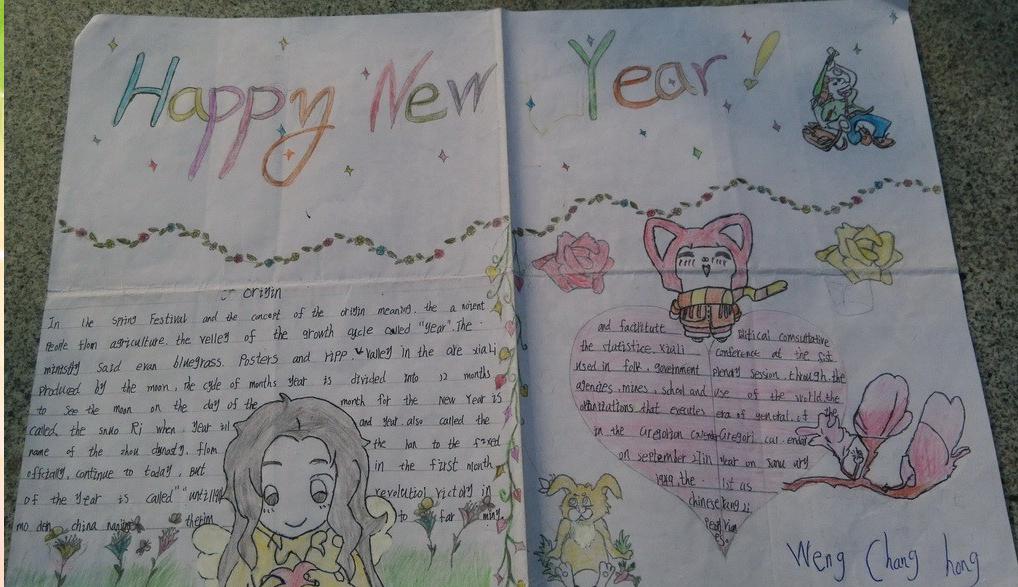 Happy New Year!
origin
In the Spring Festival and the concept of the origin meaning. the a ncient
people from agriculture. the velley of the growth cycle called "year". The
said evan bluegrass. Posters and valley in the are xiali
produced by the moon, the cycle of months year is divided into 12 months
to see the moon on the day of the month for the New Year is
called. the snuo Ri when year and year also called the
name of the zhou dynasty, from the han to the
officially, continue to today, But in the first month
of the Year is called "" until revolutiol victory in
mo den china to far ming.
and facilitate litical comsultative
the statistice. xiali conference at the
used in folk, government plenary session, through the
agencies, mines, school and use of the world, the
that executes era of general, of the
in the Gregorian Gregori cal endar
on september 27in year on Janu ary
1949, the 1st as
chinese
Weng Chang hong